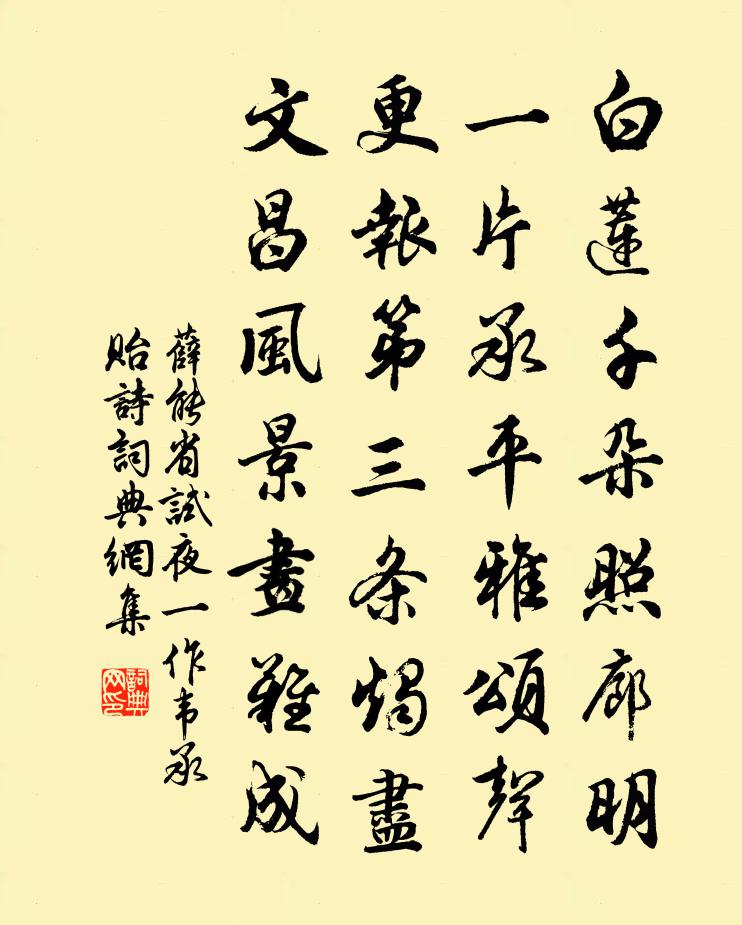 白蓮千朵照廊明
一片承平雅頌聲
更報第三条燭盡
文昌風景畫難成
薛能省試夜一作韦承
貽詩詞典網集
詞典
网印